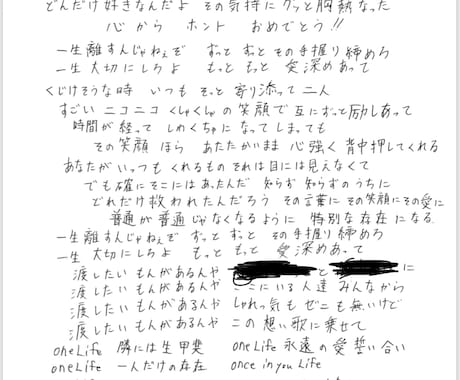 どんだけ好きなんだよ その気持に グッと胸熱なった
心から ホント おめでとう!!
一生離すんじゃねぇぞ ずっと ずっと その手握り締めろ
一生大切にしろよ もっと もっと 愛深めあって
くじけそうな時 いつも そっと 寄り添って 二人
すごい ニコニコ くしゃくしゃの笑顔で 互にずっと励しあって
時間が経って しわくちゃになってしまっても
その笑顔 ほら あたたかいまま 心強く 背中押してくれる
あなたがいっつも くれるもの それは目には見えなくて
でも確にそこにはあったんだ 知らず 知らずのうちに
どれだけ救われたんだろう その言葉に その笑顔に その愛に
普通が普通じゃなくなるように 特別な存在になる
一生離すんじゃねぇぞ ずっと ずっと その手握り締めろ
一生 大切にしろよ もっと もっと 愛深めあって
渡したいもんがあるんや と に
渡したいもんがあるんや ここにいる人達 みんなから
渡したいもんがあるんや しゃれっ気も ゼニも無いけど
渡したいもんがあるんや この想い歌に乗せて
one Life 隣には生甲斐 one Life 永遠の愛誓い合い
one Life 一人だけの存在 once in you Life